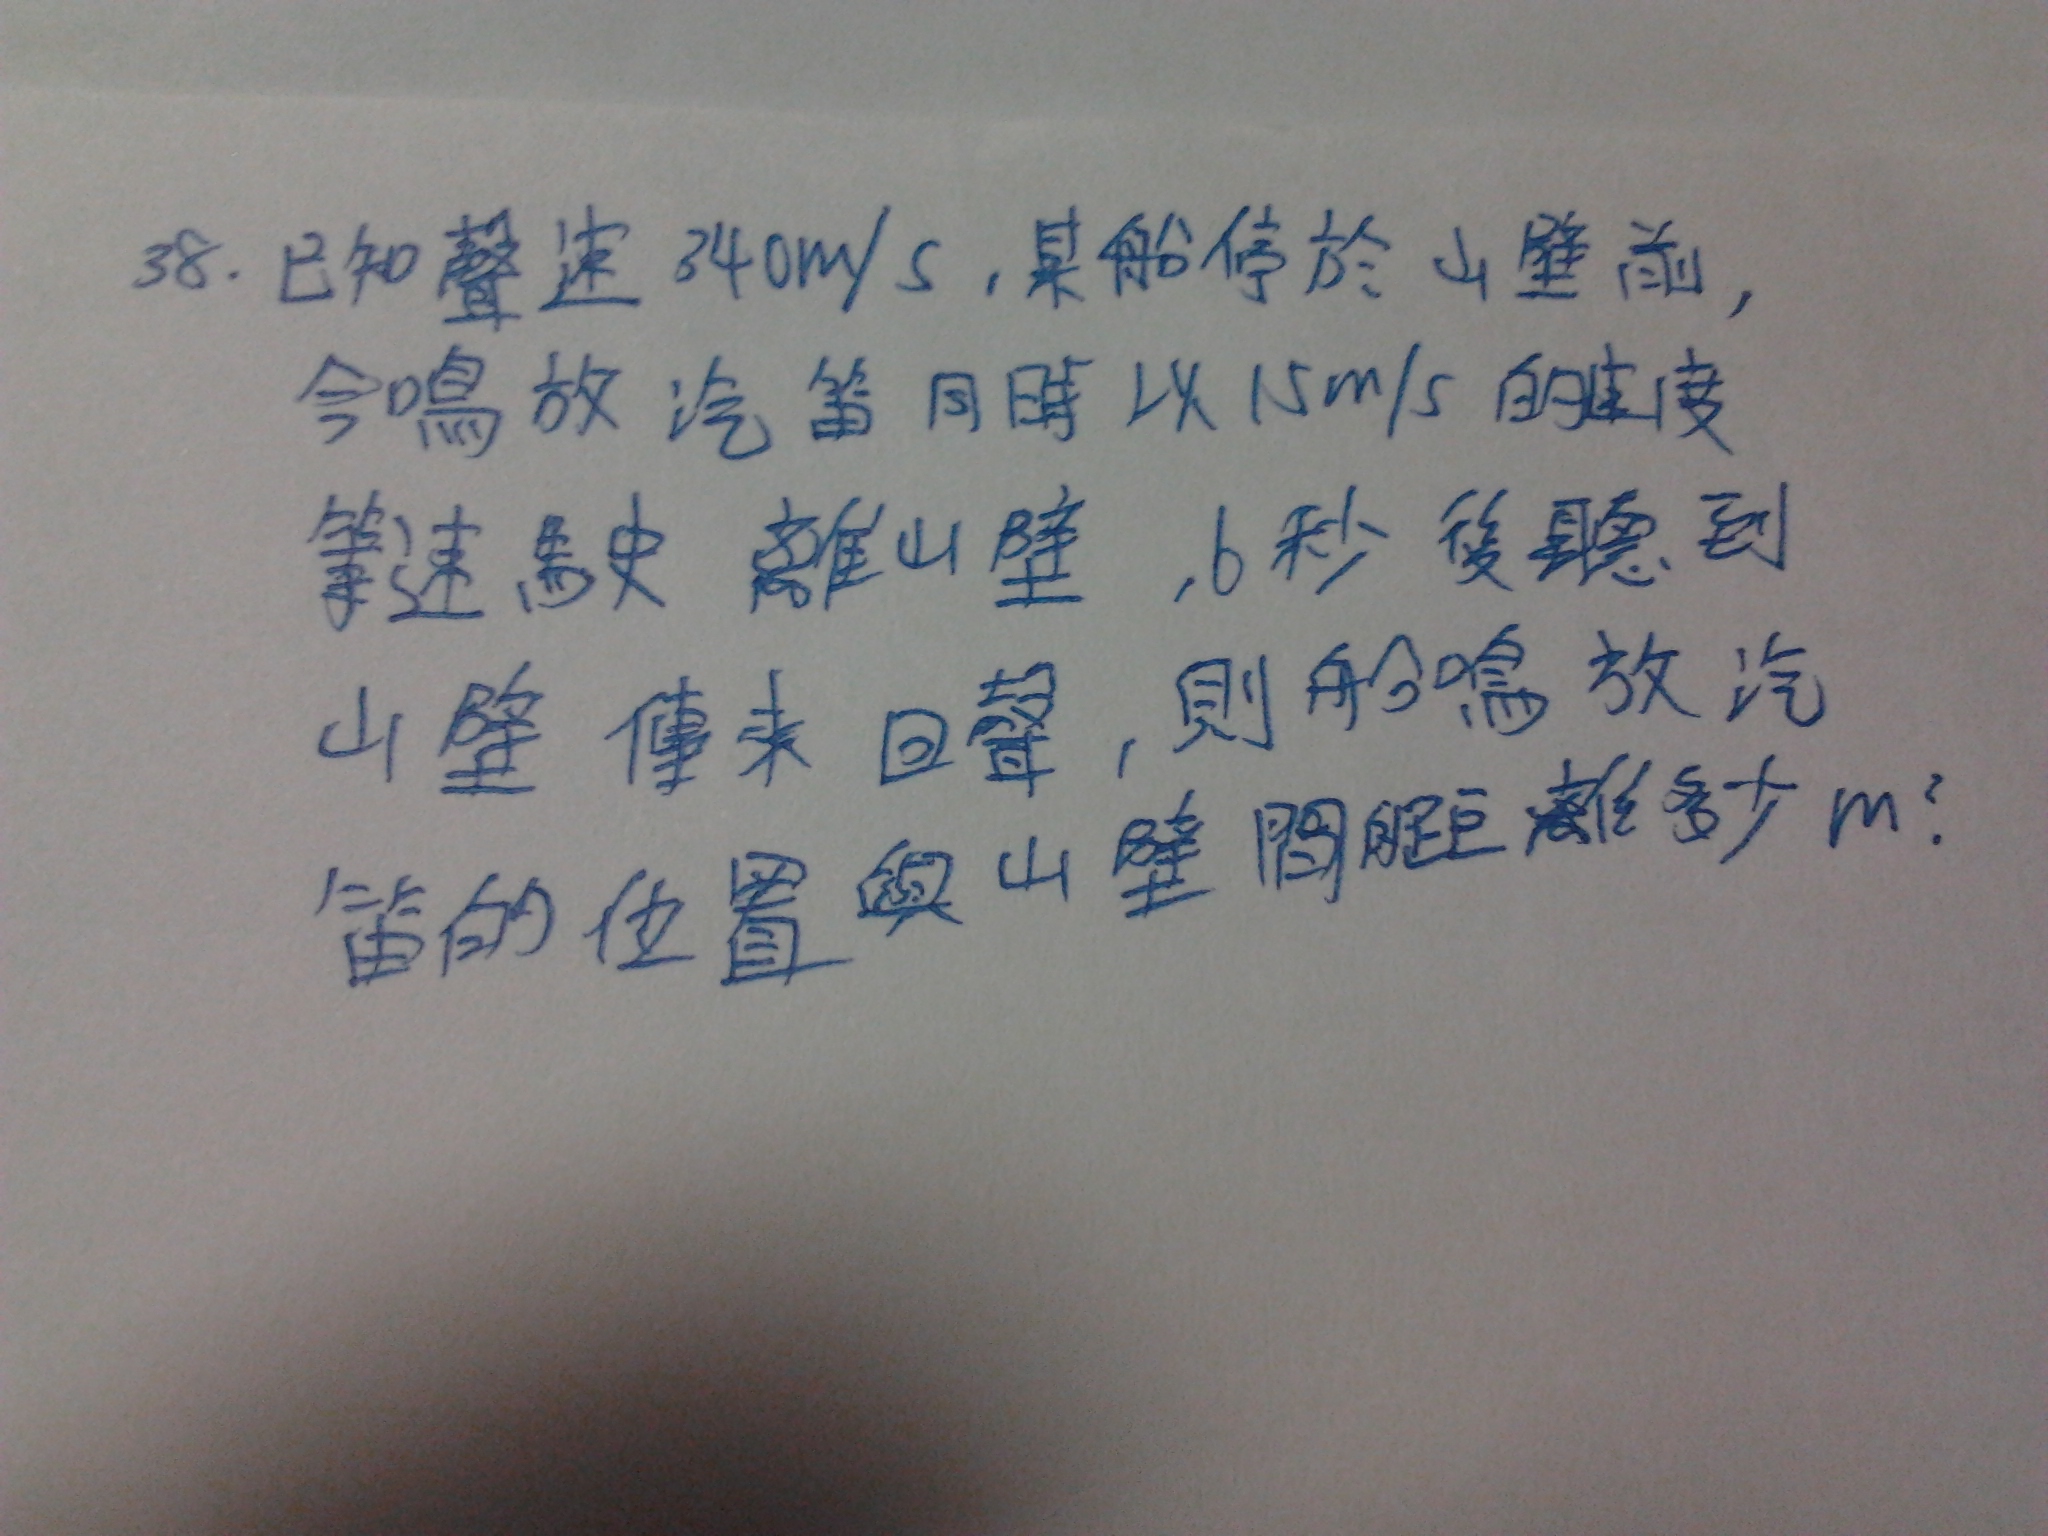 38. 已知聲速 340m/s,某船停於山壁前,
今鳴放汽笛同時以15m/s的速度
等速駛離山壁,6秒後聽到
山壁傳來回聲,則船鳴放汽
笛的位置與山壁間距離多少m?